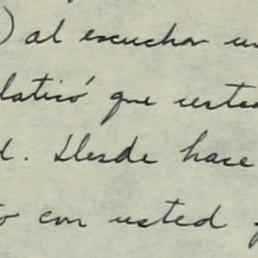 ) al escuchar un
laticó que usted
d. Desde hace
o con usted